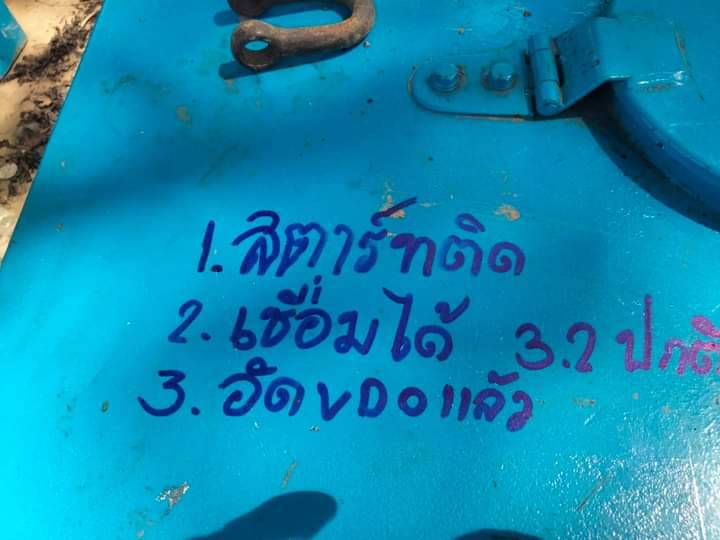 1. สิตาร์ทติด
2. เชื่อมได้ 3.2 ปกติ
3. อัด VDO แล้ว